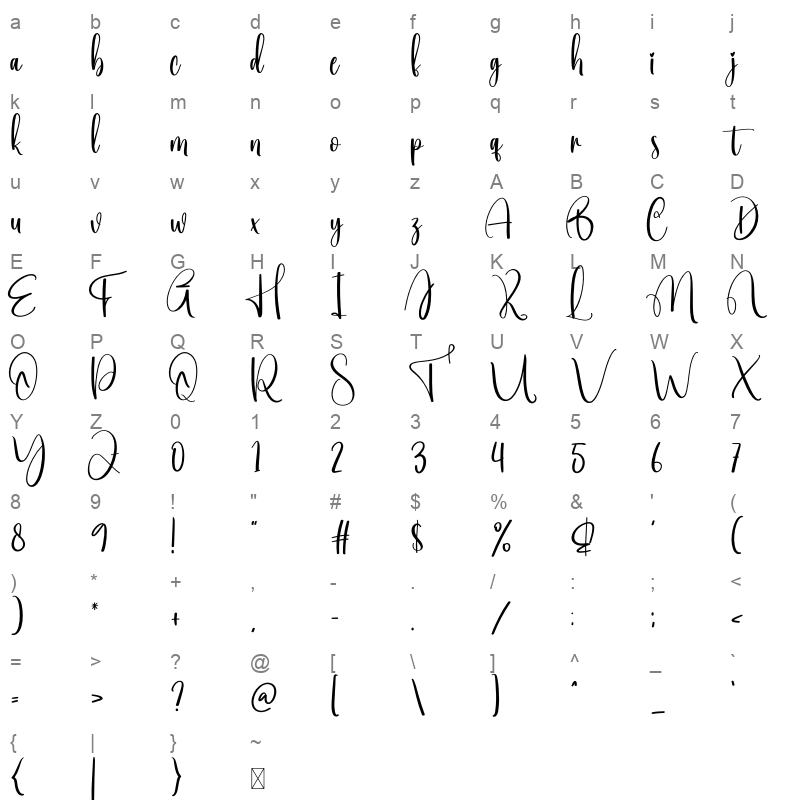 a b c d e f g h i j
a b c d e f g h i j
k l m n o p q r s t
k l m n o p q r s t
u v w x y z A B C D
u v w x y z A B C D
E F G H I J K L M N
E F G H I J K L M N
O P Q R S T U V W X
O P Q R S T U V W X
Y Z 0 1 2 3 4 5 6 7
Y Z 0 1 2 3 4 5 6 7
8 9 ! " # $ % & ' (
8 9 ! " # $ % & ' (
) * + , - . / : ; <
) * + , - . / : ; <
= > ? @ [ \ ] ^ _ `
= > ? @ [ \ ] ^ _ `
{ | } ~
{ | }